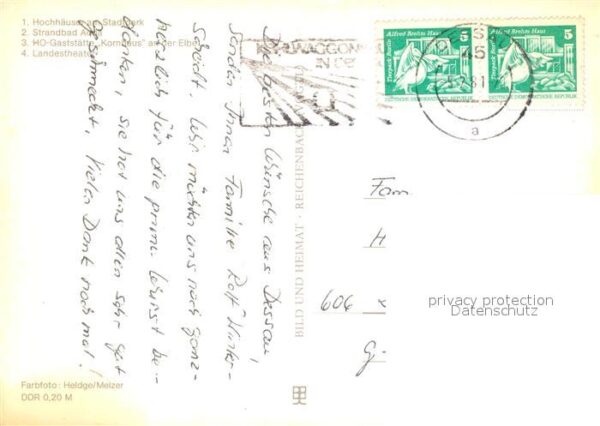 1. Hochhäuser am Stadtpark
2. Strandbad Adria
3. HO-Gaststätte „Kornhaus“ an der Elbe
4. Landestheater
Die besten Wünsche aus Dessau,
senden Ihnen Familie Rolf Winter-
stedt. Wir möchten uns noch ganz
herzlich für die prima Wurst be-
danken, sie hat uns allen sehr gut
geschmeckt. Vielen Dank nochmal!
Farbfoto: Heldge/Melzer
DDR 0,20 M
BILD UND HEIMAT · REICHENBACH
WAGGON
45
a
Tierpark Berlin
Alfred Brehm Haus
5
DEUTSCHE DEMOKRATISCHE REPUBLIK
Tierpark Berlin
Alfred Brehm Haus
5
DEUTSCHE DEMOKRATISCHE REPUBLIK
Fam
H
606
G
privacy protection
Datenschutz